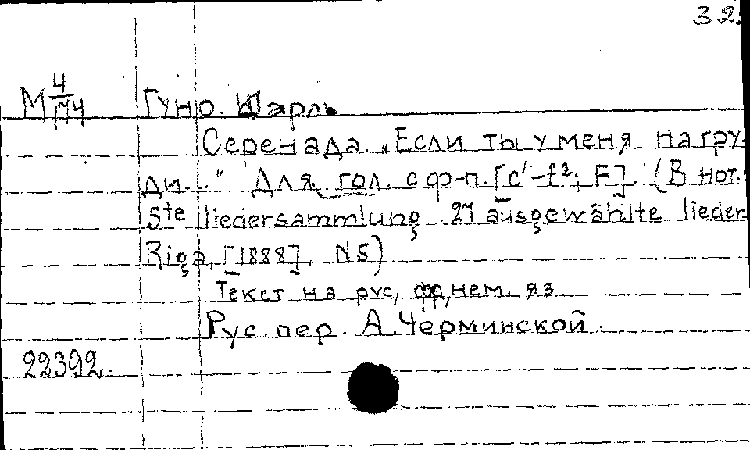 32.
М 4/Г14 Гуно. Шарль
Серенада. „Если ты у меня на гру-
ди.." Для гол. с ф-п. [c'-f²; F]. (В нот.:
5te liedersammlung. 21 ausgewählte lieder
Riga, [1888], N5)
Текст на рус, фр, нем. яз
Рус. пер. А. Черминской.
22392.